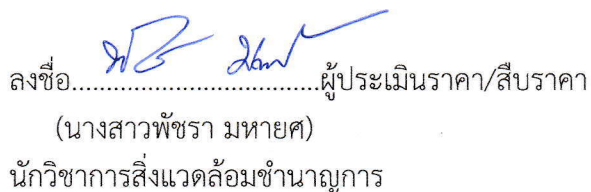 ลงชื่อ....................................ผู้ประเมินราคา/สืบราคา
(นางสาวพัชรา มหายศ)
นักวิชาการสิ่งแวดล้อมชำนาญการ